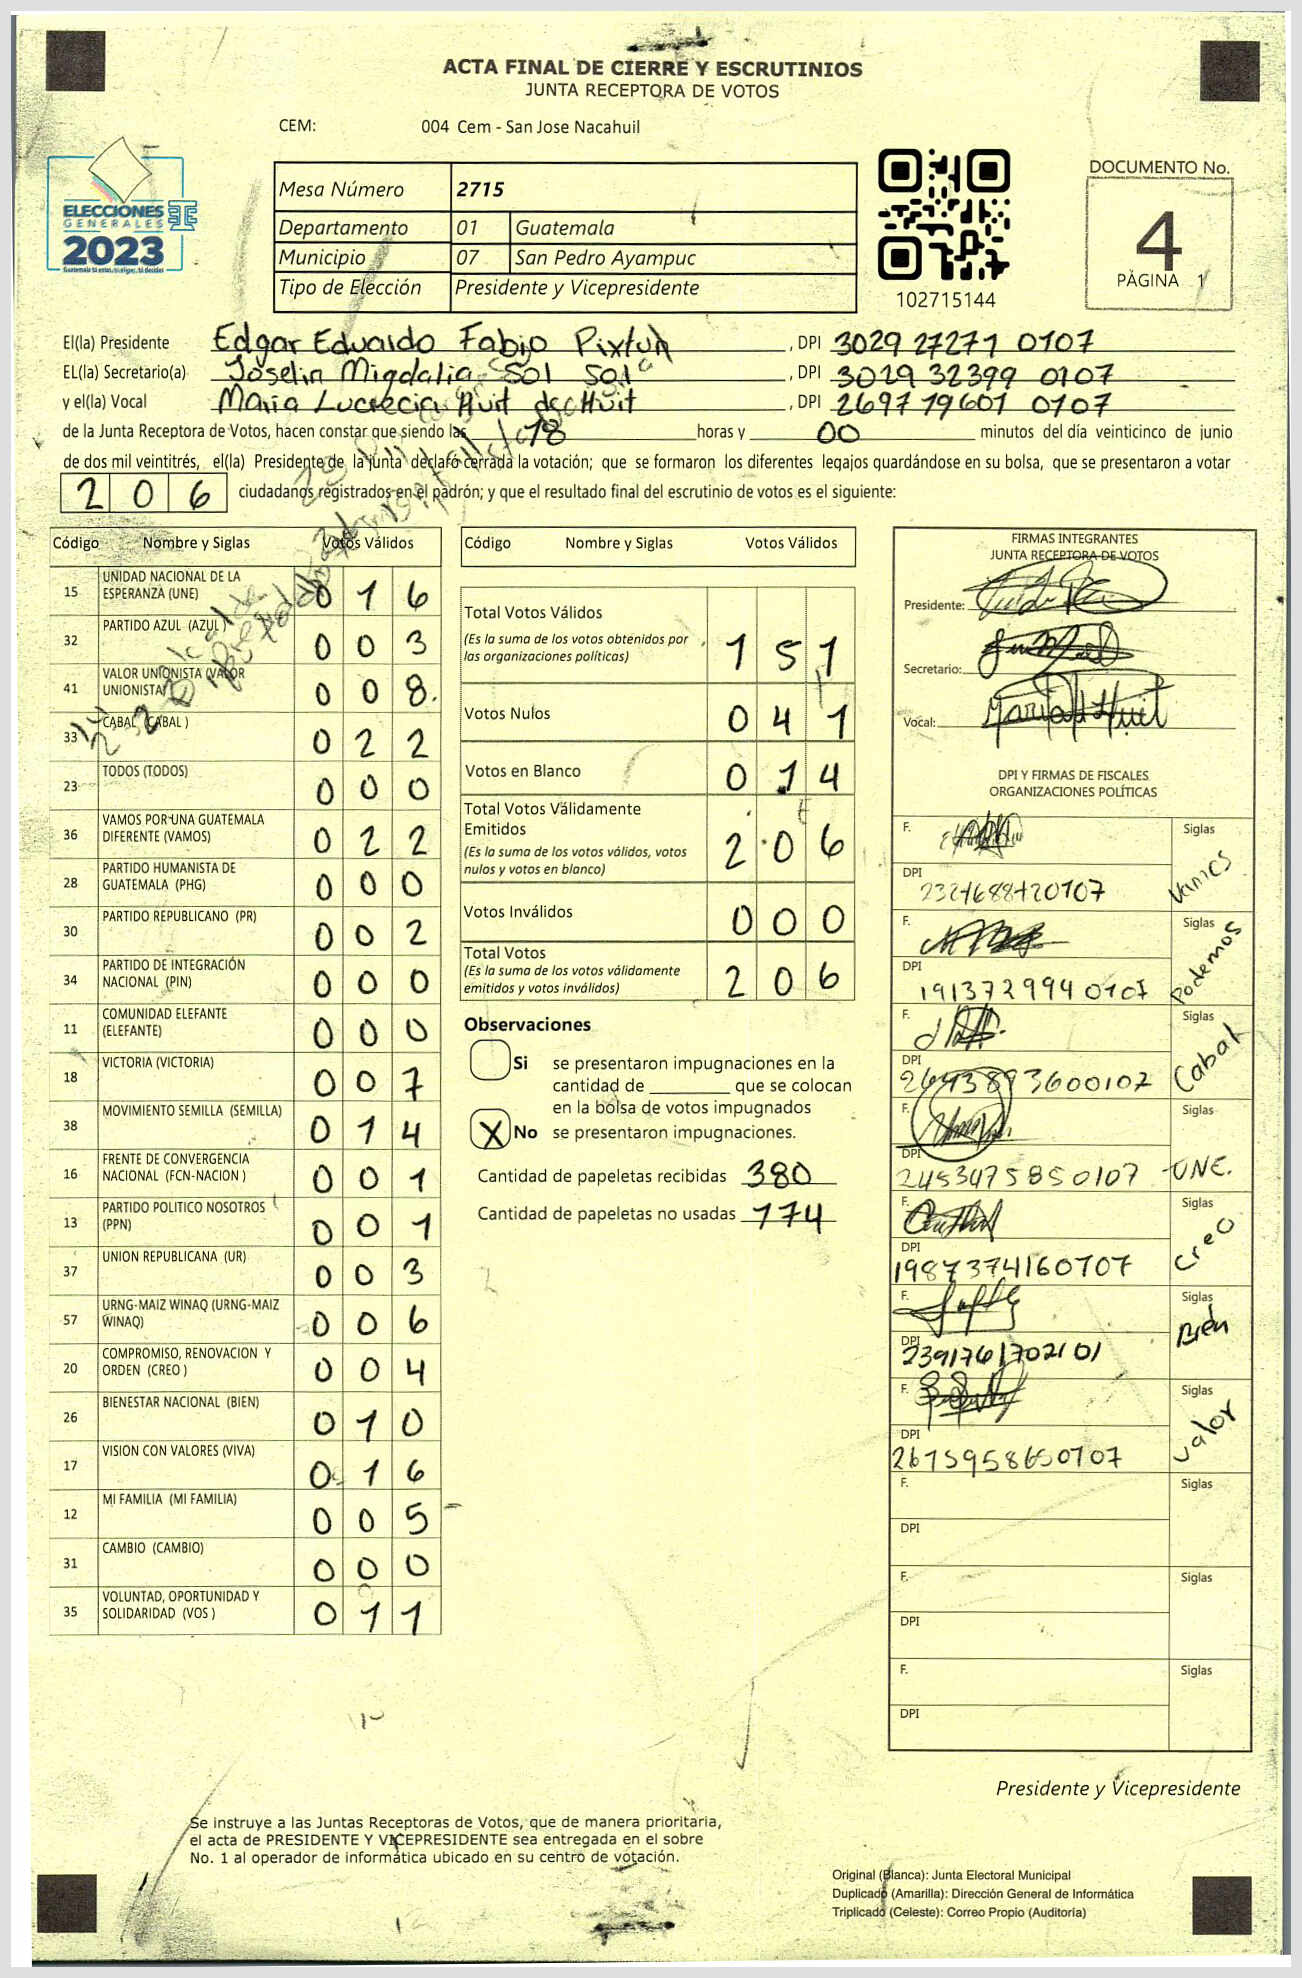 ACTA FINAL DE CIERRE Y ESCRUTINIOS
JUNTA RECEPTORA DE VOTOS
CEM: 004 Cem - San Jose Nacahuil
ELECCIONES
GENERALES
2023
Mesa Número 2715
Departamento 01 Guatemala
Municipio 07 San Pedro Ayampuc
Tipo de Elección Presidente y Vicepresidente
102715144
DOCUMENTO No.
4
PÀGINA 1
El(la) Presidente Edgar Eduardo Fabio Pixtun, DPI 3029 27271 0107
EL(la) Secretario(a) Joselin Migdalia Sol Sol, DPI 3029 32399 0107
y el(la) Vocal Maria Lucrecia Huit de Huit, DPI 2697 19601 0107
de la Junta Receptora de Votos, hacen constar que siendo las 18 horas y 00 minutos del día veinticinco de junio
de dos mil veintitrés, el(la) Presidente de la junta declaró cerrada la votación; que se formaron los diferentes legajos guardándose en su bolsa, que se presentaron a votar
206 ciudadanos registrados en el padrón; y que el resultado final del escrutinio de votos es el siguiente:
Código Nombre y Siglas Votos Válidos
15 UNIDAD NACIONAL DE LA ESPERANZA (UNE) 016
32 PARTIDO AZUL (AZUL) 003
41 VALOR UNIONISTA (VALOR UNIONISTA) 008
33 CABAL (CABAL ) 022
23 TODOS (TODOS) 000
36 VAMOS POR UNA GUATEMALA DIFERENTE (VAMOS) 022
28 PARTIDO HUMANISTA DE GUATEMALA (PHG) 000
30 PARTIDO REPUBLICANO (PR) 002
34 PARTIDO DE INTEGRACIÓN NACIONAL (PIN) 000
11 COMUNIDAD ELEFANTE (ELEFANTE) 000
18 VICTORIA (VICTORIA) 007
38 MOVIMIENTO SEMILLA (SEMILLA) 014
16 FRENTE DE CONVERGENCIA NACIONAL (FCN-NACION ) 001
13 PARTIDO POLITICO NOSOTROS (PPN) 001
37 UNION REPUBLICANA (UR) 003
57 URNG-MAIZ WINAQ (URNG-MAIZ WINAQ) 006
20 COMPROMISO, RENOVACION Y ORDEN (CREO ) 004
26 BIENESTAR NACIONAL (BIEN) 010
17 VISION CON VALORES (VIVA) 016
12 MI FAMILIA (MI FAMILIA) 005
31 CAMBIO (CAMBIO) 000
35 VOLUNTAD, OPORTUNIDAD Y SOLIDARIDAD (VOS ) 011
Código Nombre y Siglas Votos Válidos
Total Votos Válidos 151
(Es la suma de los votos obtenidos por
las organizaciones políticas)
Votos Nulos 041
Votos en Blanco 014
Total Votos Válidamente
Emitidos 206
(Es la suma de los votos válidos, votos
nulos y votos en blanco)
Votos Inválidos 000
Total Votos 206
(Es la suma de los votos válidamente
emitidos y votos inválidos)
Observaciones
Si se presentaron impugnaciones en la
cantidad de ________ que se colocan
en la bolsa de votos impugnados
X No se presentaron impugnaciones.
Cantidad de papeletas recibidas 380
Cantidad de papeletas no usadas 174
FIRMAS INTEGRANTES
JUNTA RECEPTORA DE VOTOS
Presidente:
Secretario:
Vocal: Maria Huit
DPI Y FIRMAS DE FISCALES
ORGANIZACIONES POLÍTICAS
F. Siglas Vamos
DPI
F. Siglas Podemos
DPI 1913729940107
F. Siglas Cabal
DPI 2643893600107
F. Siglas UNE.
DPI 2453475850107
F. Siglas Creo
DPI 1987374160707
F. Siglas Bien
DPI 2391761702101
F. Siglas Valor
DPI 2675958650707
F. Siglas
DPI
F. Siglas
DPI
F. Siglas
DPI
Presidente y Vicepresidente
Se instruye a las Juntas Receptoras de Votos, que de manera prioritaria,
el acta de PRESIDENTE Y VICEPRESIDENTE sea entregada en el sobre
No. 1 al operador de informática ubicado en su centro de votación.
Original (Blanca): Junta Electoral Municipal
Duplicado (Amarilla): Dirección General de Informática
Triplicado (Celeste): Correo Propio (Auditoría)